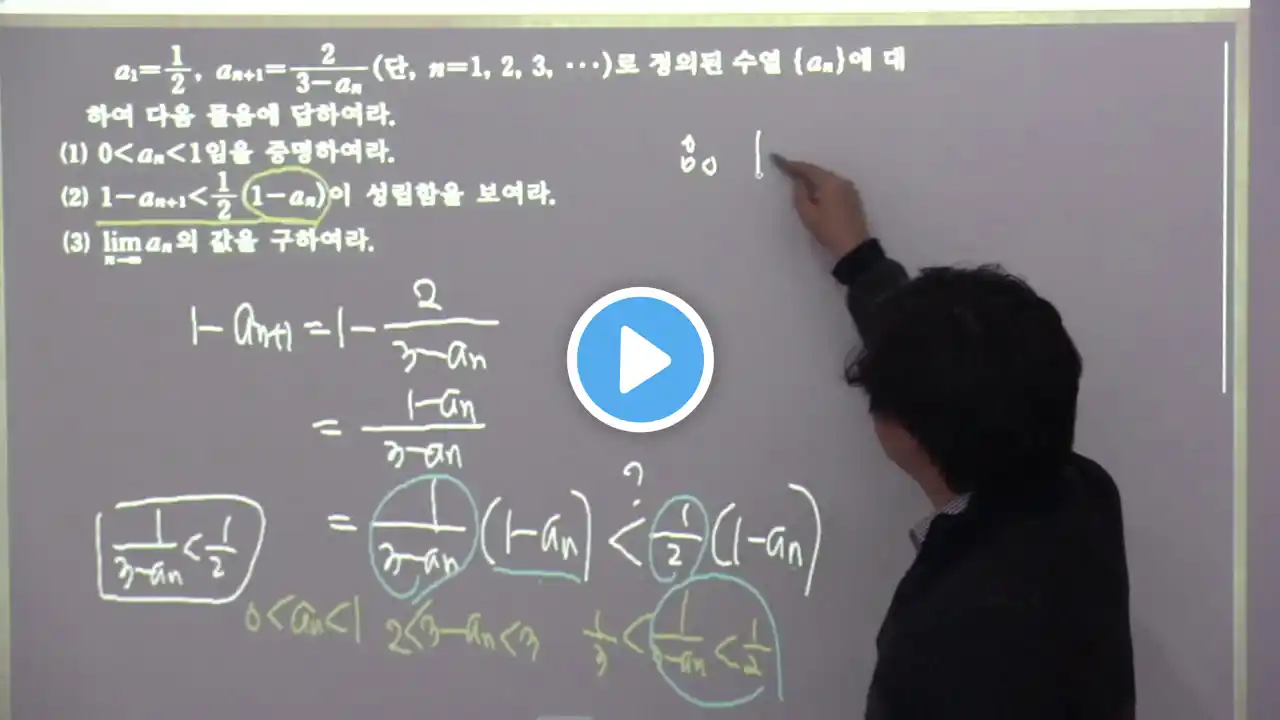 a₁=1/2, aₙ₊₁=2/(3-aₙ) (단, n=1, 2, 3, ⋯)로 정의된 수열 {aₙ}에 대
하여 다음 물음에 답하여라.
(1) 0<aₙ<1임을 증명하여라.
(2) 1-aₙ₊₁<1/2(1-aₙ)이 성립함을 보여라.
(3) lim n→∞ aₙ의 값을 구하여라.
1-aₙ₊₁=1-2/(3-aₙ)
=(1-aₙ)/(3-aₙ)
?
=1/(3-aₙ)(1-aₙ)<1/2(1-aₙ)
1/(3-aₙ)<1/2
0<aₙ<1 2<3-aₙ<3 1/3<1/(3-aₙ)<1/2